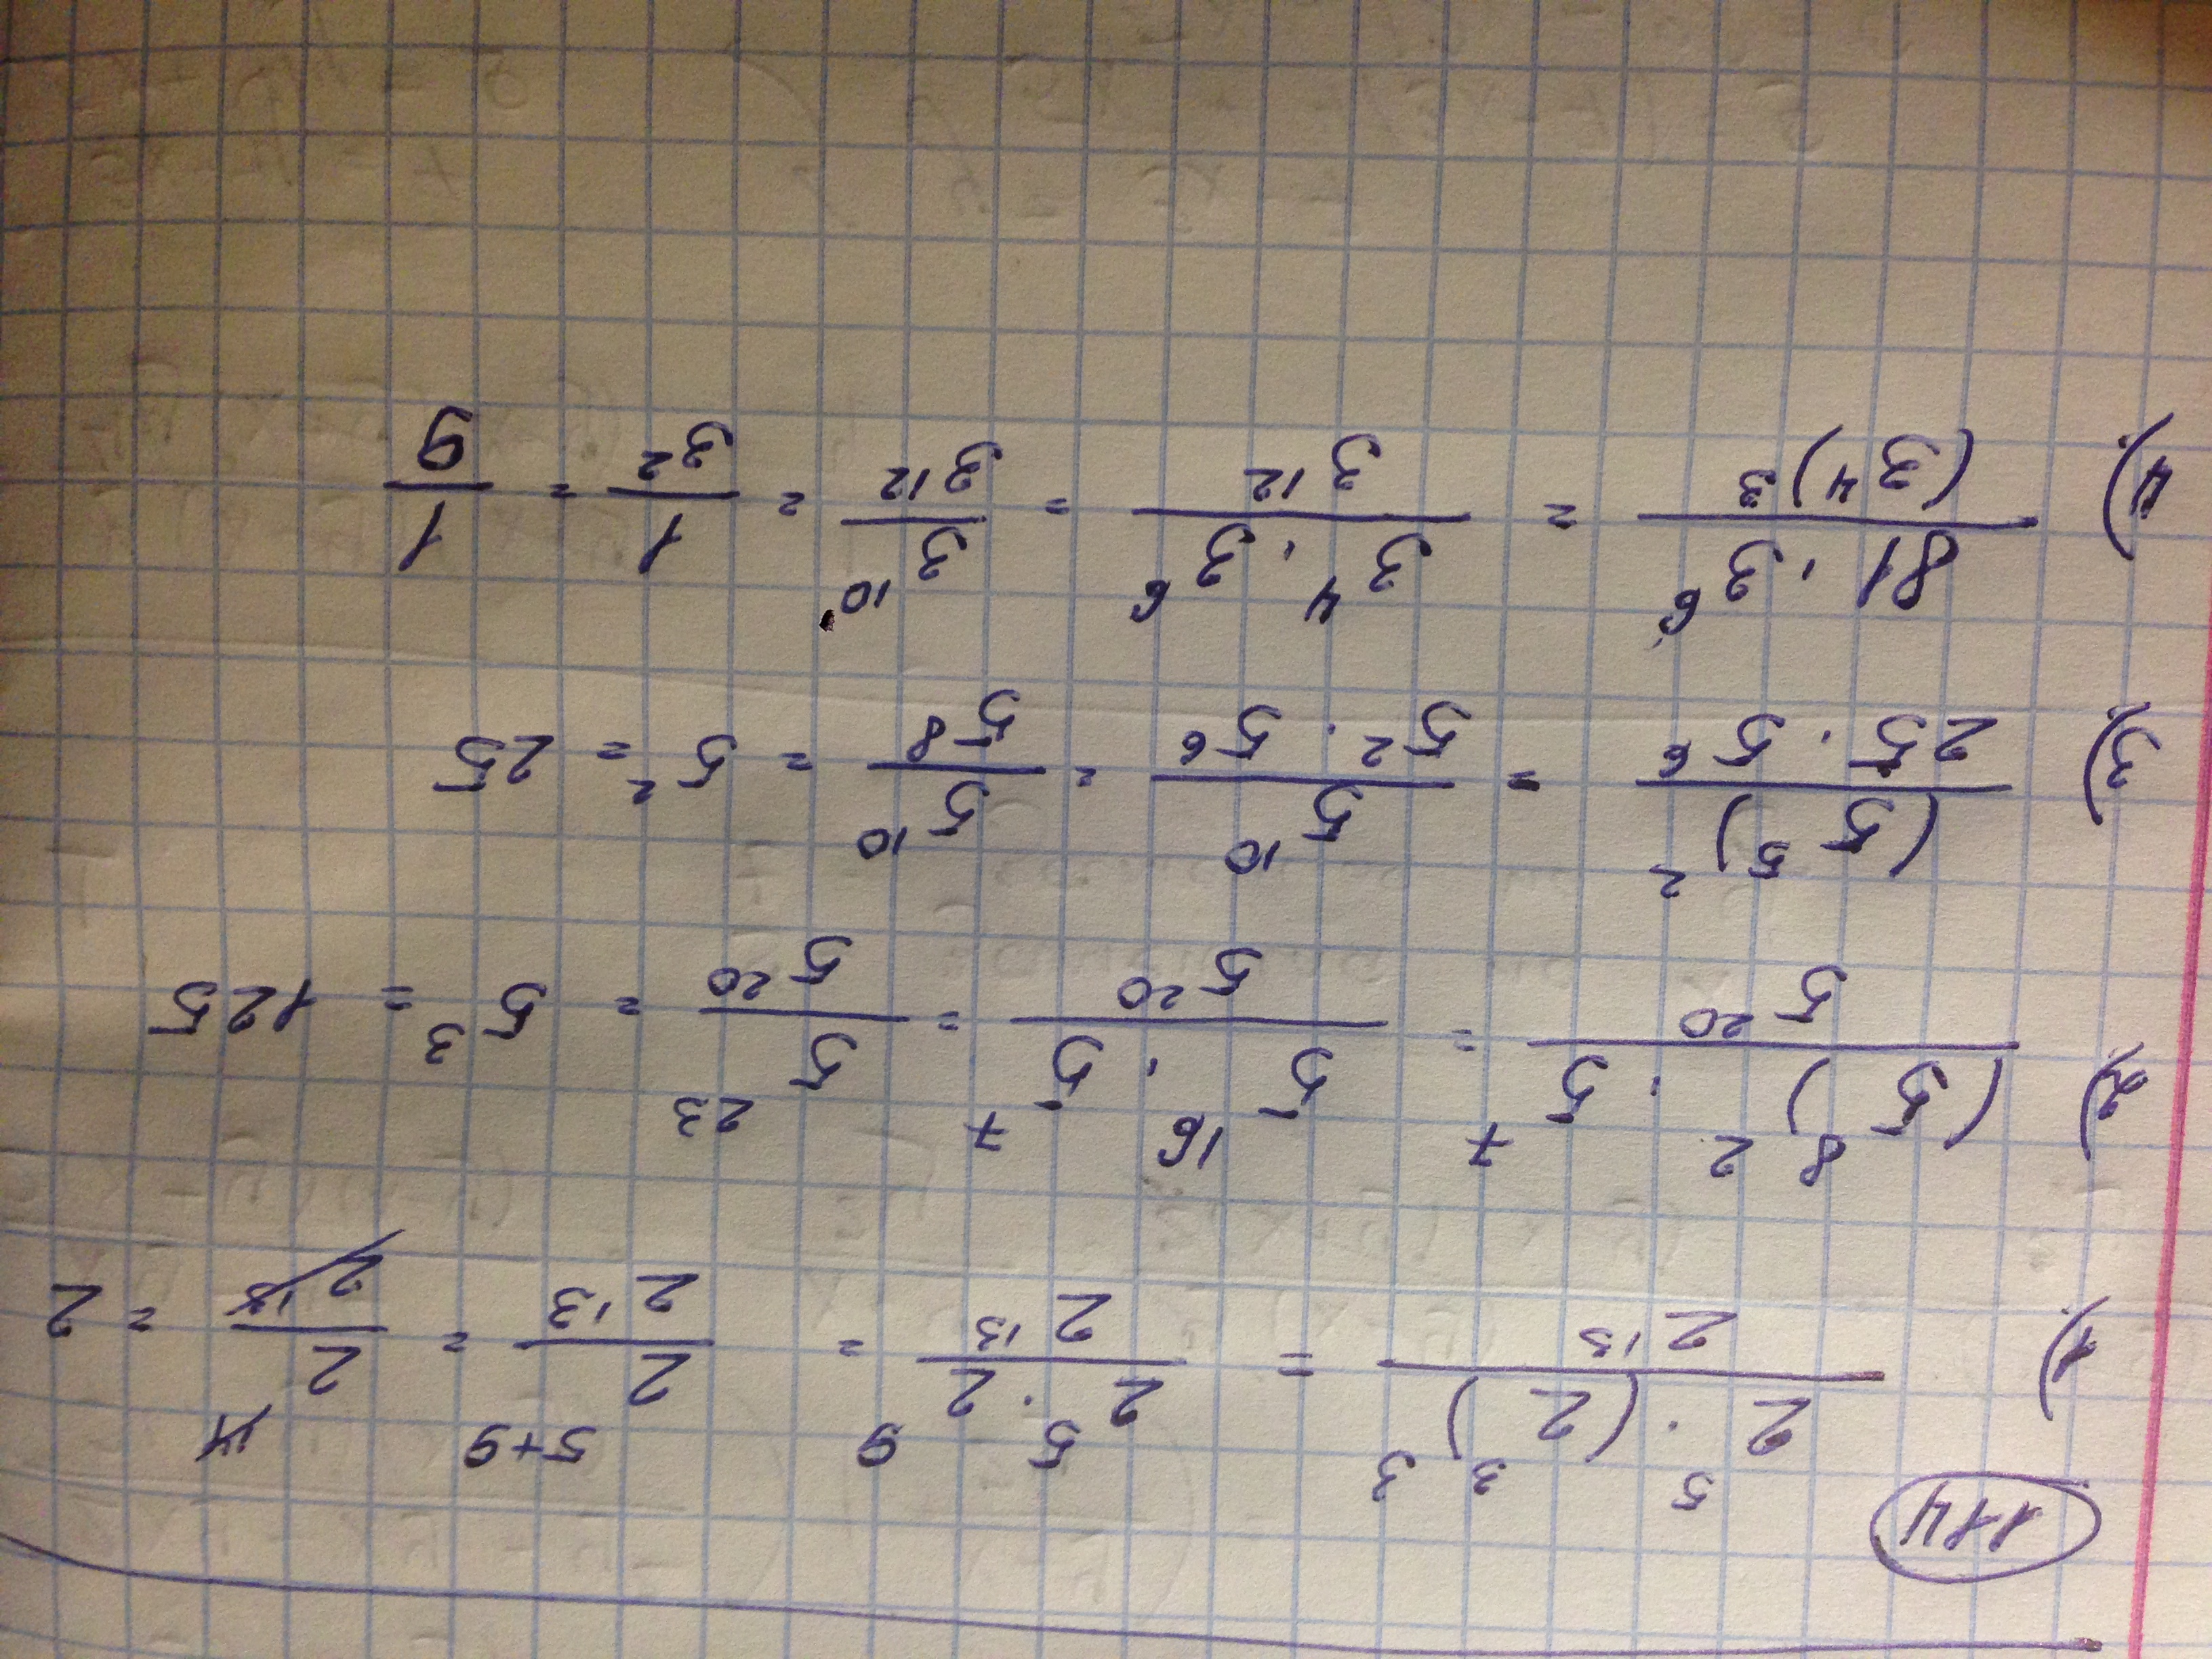 114
1) \frac{2^5 \cdot (2^3)^3}{2^{13}} = \frac{2^5 \cdot 2^9}{2^{13}} = \frac{2^{5+9}}{2^{13}} = \frac{2^{14}}{2^{13}} = 2
2) \frac{(5^8)^2 \cdot 5^7}{5^{20}} = \frac{5^{16} \cdot 5^7}{5^{20}} = \frac{5^{23}}{5^{20}} = 5^3 = 125
3) \frac{(5^5)^2}{25 \cdot 5^6} = \frac{5^{10}}{5^2 \cdot 5^6} = \frac{5^{10}}{5^8} = 5^2 = 25
4) \frac{81 \cdot 3^6}{(3^4)^3} = \frac{3^4 \cdot 3^6}{3^{12}} = \frac{3^{10}}{3^{12}} = \frac{1}{3^2} = \frac{1}{9}